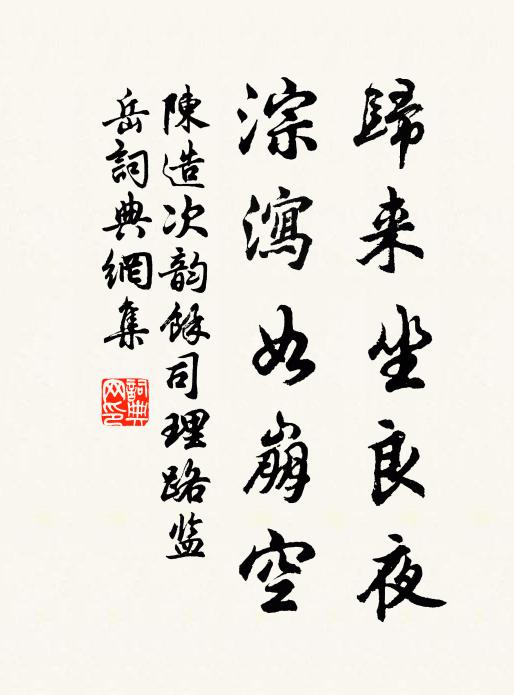 歸来坐良夜
淙瀉如崩空
陳造次韵餘司理路监
岳詞典網集
詞典网印